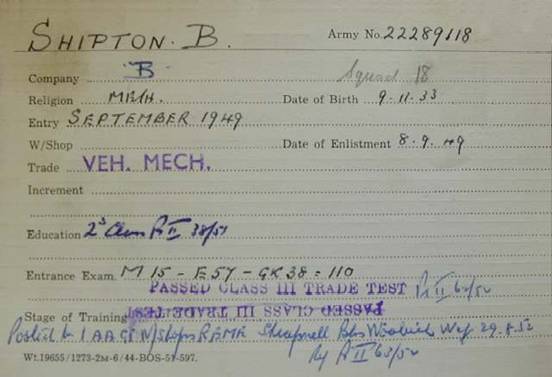 SHIPTON. B. Army No. 22289118
Company "B" Squad 18
Religion METH. Date of Birth 9.11.33
Entry SEPTEMBER 1949
W/Shop Date of Enlistment 8.9.49
Trade VEH. MECH.
Increment
Education 2nd Class Pt II 38/51
Entrance Exam. M 15 - E 57 - GK 38 = 110
PASSED CLASS III TRADE TEST Pt II 63/52
Stage of Training PASSED CLASS III TRADE TEST
Posted to 1 AA W/Shops REME Shrapnell Woolwich Wef 29.8.52
Pt II 63/52
Wt.19655/1273-2M-6/44-BOS-51-597.